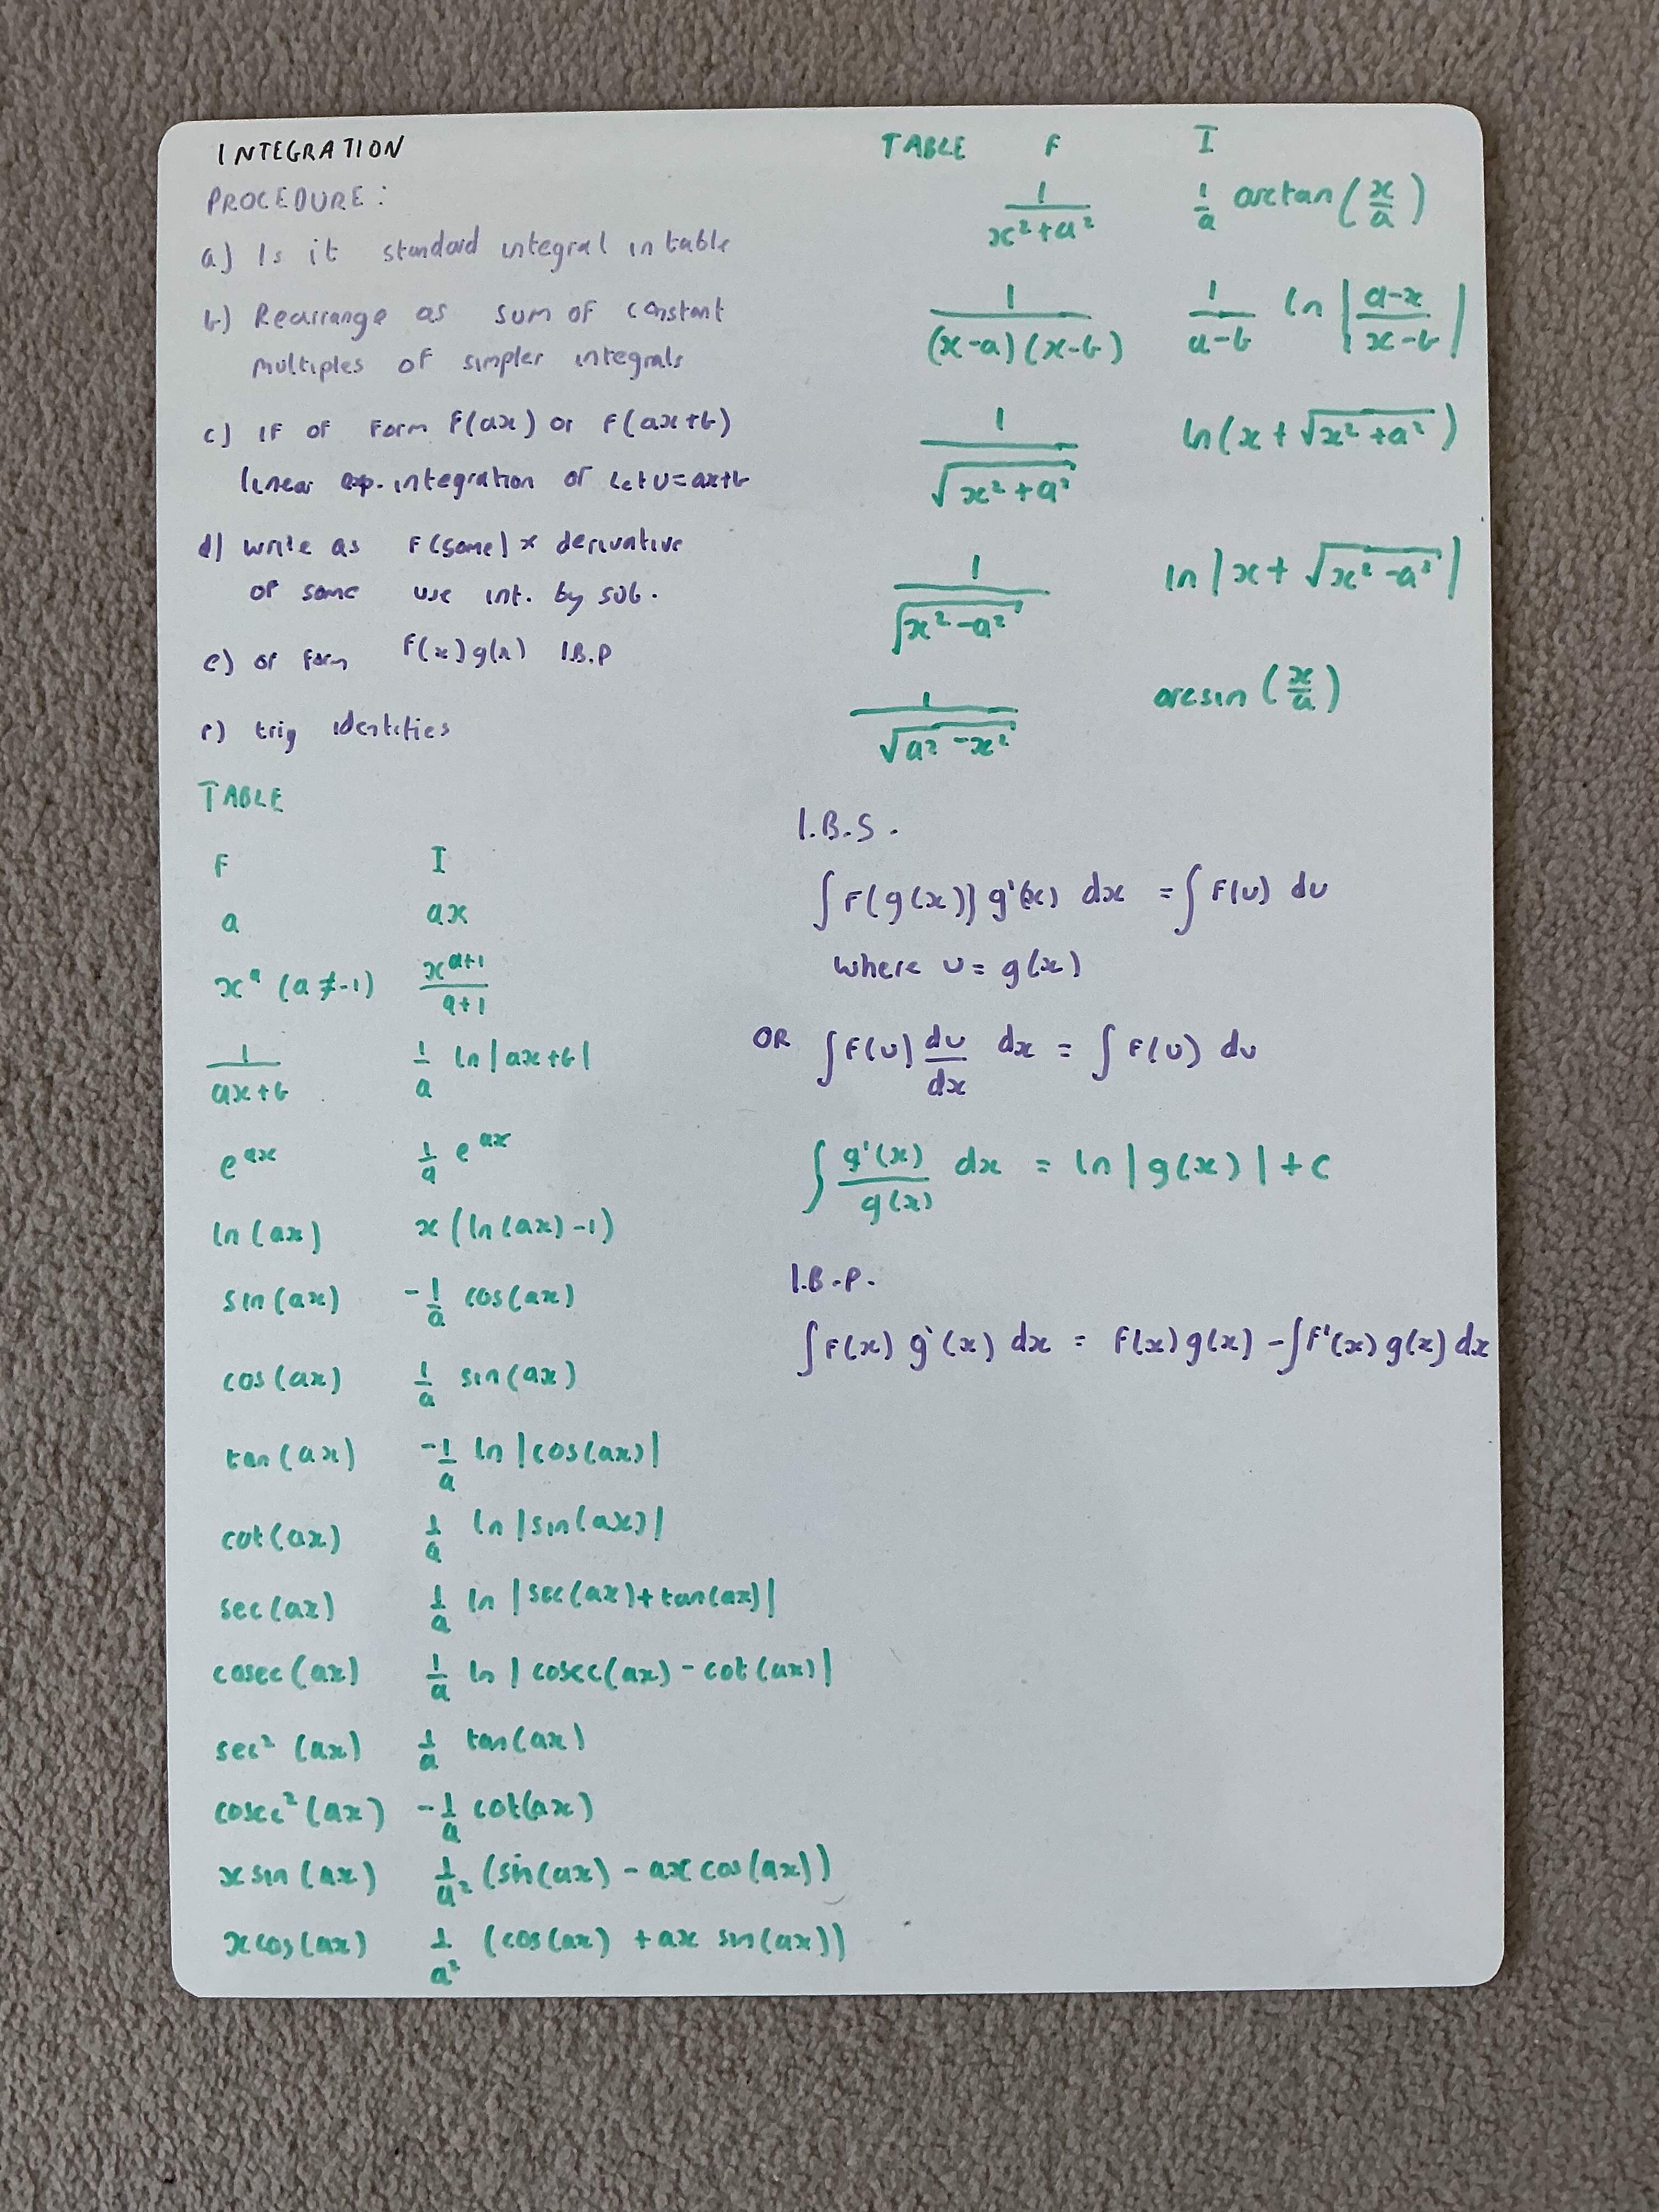 INTEGRATION
PROCEDURE:
a) Is it standard integral in table
b) Rearrange as sum of constant
multiples of simpler integrals
c) IF of Form F(ax) or F(ax+b)
linear exp. integration or Let u=ax+b
d) write as F(some) x derivative
of some use int. by sub.
e) of form F(x)g(x) I.B.P
f) trig identities
TABLE
F I
a ax
x^a (a≠-1) x^(a+1)/(a+1)
1/(ax+b) 1/a ln|ax+b|
e^(ax) 1/a e^(ax)
ln(ax) x(ln(ax)-1)
sin(ax) -1/a cos(ax)
cos(ax) 1/a sin(ax)
tan(ax) -1/a ln|cos(ax)|
cot(ax) 1/a ln|sin(ax)|
sec(ax) 1/a ln|sec(ax)+tan(ax)|
cosec(ax) 1/a ln|cosec(ax)-cot(ax)|
sec²(ax) 1/a tan(ax)
cosec²(ax) -1/a cot(ax)
x sin(ax) 1/a² (sin(ax) - ax cos(ax))
x cos(ax) 1/a² (cos(ax) + ax sin(ax))
TABLE F I
1/(x²+a²) 1/a arctan(x/a)
1/((x-a)(x-b)) 1/(a-b) ln|(a-x)/(x-b)|
1/√(x²+a²) ln(x+√(x²+a²))
1/√(x²-a²) ln|x+√(x²-a²)|
1/√(a²-x²) arcsin(x/a)
I.B.S.
∫F(g(x)) g'(x) dx = ∫F(u) du
where u = g(x)
OR ∫F(u) du/dx dx = ∫F(u) du
∫g'(x)/g(x) dx = ln|g(x)| + c
I.B.P.
∫F(x) g'(x) dx = F(x)g(x) - ∫F'(x)g(x)dx